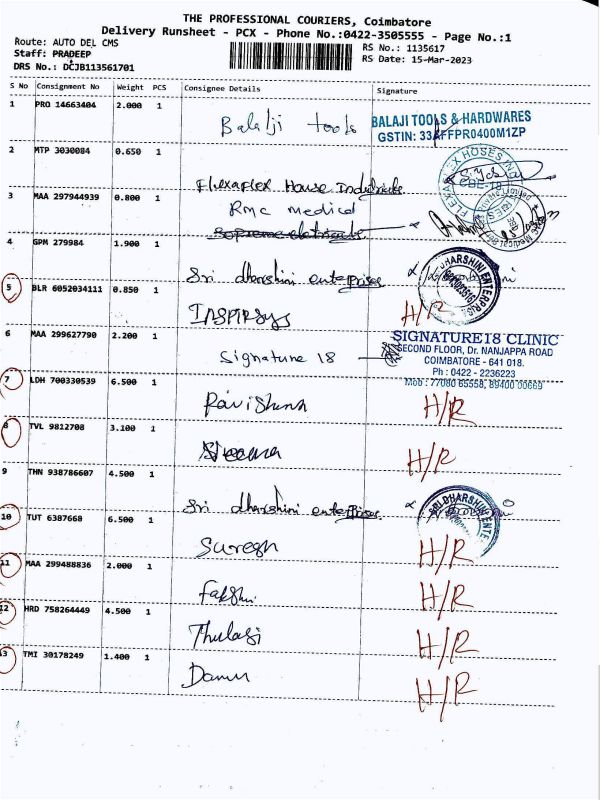 THE PROFESSIONAL COURIERS, Coimbatore
Delivery Runsheet - PCX - Phone No.:0422-3505555 - Page No.:1
Route: AUTO DEL CMS RS No.: 1135617
Staff: PRADEEP RS Date: 15-Mar-2023
DRS No.: DCJB113561701
S No Consignment No Weight PCS Consignee Details Signature
1 PRO 14663404 2.000 1 Balaji tools BALAJI TOOLS & HARDWARES
GSTIN: 33AFFPR0400M1ZP
2 MTP 3030084 0.650 1 Flexaflex House
FLEXAFLEX HOSES
3 MAA 297944939 0.800 1 RMC medical
4 GPM 279984 1.900 1 Sri dharshini enterprises
DHARSHINI ENTERPRIS
5 BLR 6052034111 0.850 1 INSPIRSYS H/R
6 MAA 299627790 2.200 1 Signature 18 SIGNATURE18 CLINIC
SECOND FLOOR, Dr. NANJAPPA ROAD
COIMBATORE - 641 018.
Ph : 0422 - 2236223
Mob : 77080 65558, 89400 00669
7 LDH 700330539 6.500 1 H/R
8 TVL 9812708 3.100 1 H/R
9 THN 938786607 4.500 1 Sri dharshini enterprises
SRI DHARSHINI ENTE
10 TUT 6387668 6.500 1 Suresh H/R
11 MAA 299488836 2.000 1 H/R
12 HRD 758264449 4.500 1 Thulasi H/R
13 TMI 30178249 1.400 1 H/R